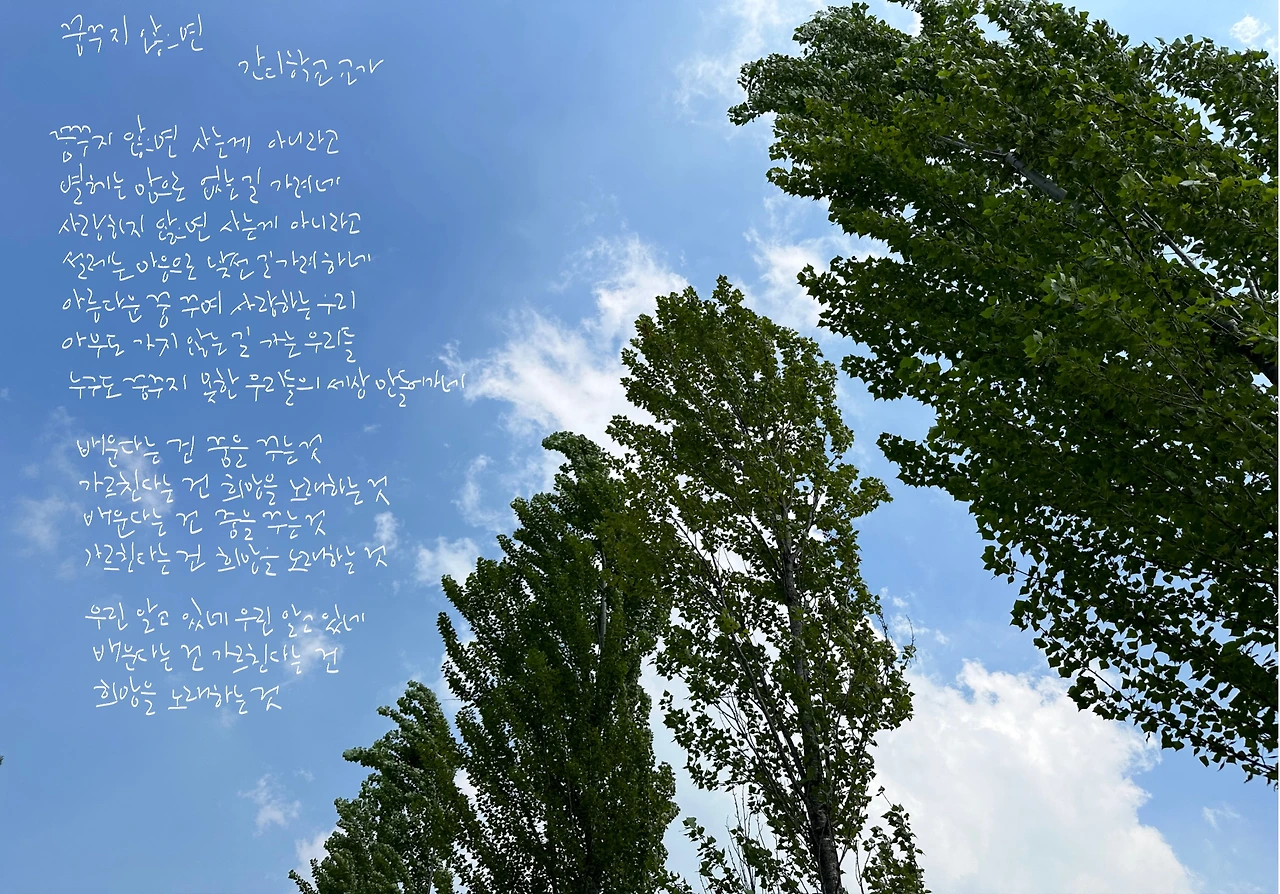 꿈꾸지 않으면
간디학교 교가
꿈꾸지 않으면 사는게 아니라고
별헤는 맘으로 없는 길 가려네
사랑하지 않으면 사는게 아니라고
설레는 마음으로 낯선 길 가려하네
아름다운 꿈 꾸며 사랑하는 우리
아무도 가지 않는 길 가는 우리들
누구도 꿈꾸지 못한 우리들의 세상 만들어가네
배운다는 건 꿈을 꾸는 것
가르친다는 건 희망을 노래하는 것
배운다는 건 꿈을 꾸는 것
가르친다는 건 희망을 노래하는 것
우린 알고 있네 우린 알고 있네
배운다는 건 가르친다는 건
희망을 노래하는 것